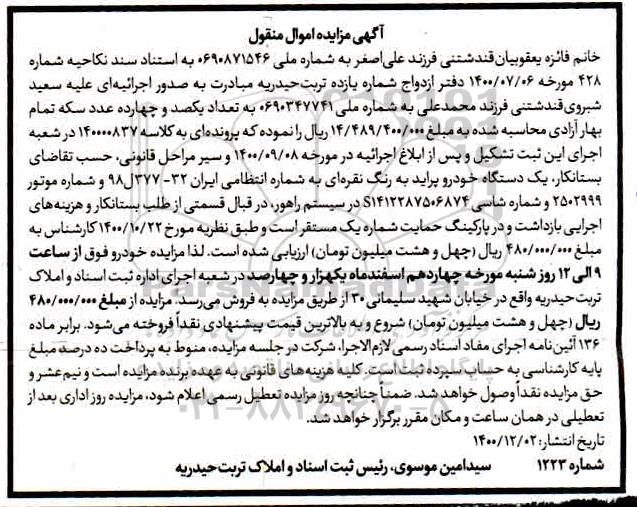 آگهی مزایده اموال منقول
خانم فائزه یعقوبیان قندشتنی فرزند علی‌اصغر به شماره ملی ۰۶۹۰۸۷۱۵۴۶ به استناد سند نکاحیه شماره
۴۲۸ مورخه ۱۴۰۰/۰۷/۰۶ دفتر ازدواج شماره یازده تربت‌حیدریه مبادرت به صدور اجرائیه‌ای علیه سعید
شیروی‌قندشتنی فرزند محمدعلی به شماره ملی ۰۶۹۰۳۴۷۷۴۱ به تعداد یکصد و چهارده عدد سکه تمام
بهار آزادی محاسبه شده به مبلغ ۱۴/۴۸۹/۴۰۰/۰۰۰ ریال را نموده که پرونده‌ای به کلاسه ۱۴۰۰۰۰۸۳۷ در شعبه
اجرای این ثبت تشکیل و پس از ابلاغ اجرائیه در مورخه ۱۴۰۰/۰۹/۰۸ و سیر مراحل قانونی، حسب تقاضای
بستانکار، یک دستگاه خودرو پراید به رنگ نقره‌ای به شماره انتظامی ایران ۳۲-۳۷۷ل۹۸ و شماره موتور
۲۵۰۲۹۹۹ و شماره شاسی S۱۴۱۲۲۸۷۵۰۶۸۷۴ در سیستم راهور، در قبال قسمتی از طلب بستانکار و هزینه‌های
اجرایی بازداشت و در پارکینگ حمایت شماره یک مستقر است و طبق نظریه مورخ ۱۴۰۰/۱۰/۲۲ کارشناس به
مبلغ ۴۸۰/۰۰۰/۰۰۰ ریال (چهل و هشت میلیون تومان) ارزیابی شده است. لذا مزایده خودرو فوق از ساعت
۹ الی ۱۲ روز شنبه مورخه چهاردهم اسفندماه یکهزار و چهارصد در شعبه اجرای اداره ثبت اسناد و املاک
تربت‌حیدریه واقع در خیابان شهید سلیمانی ۳۰ از طریق مزایده به فروش می‌رسد. مزایده از مبلغ ۴۸۰/۰۰۰/۰۰۰
ریال (چهل و هشت میلیون تومان) شروع و به بالاترین قیمت پیشنهادی نقداً فروخته می‌شود. برابر ماده
۱۳۶ آئین‌نامه اجرای مفاد اسناد رسمی لازم‌الاجرا، شرکت در جلسه مزایده، منوط به پرداخت ده درصد مبلغ
پایه کارشناسی به حساب سپرده ثبت است. کلیه هزینه‌های قانونی به عهده برنده مزایده است و نیم‌عشر و
حق مزایده نقداً وصول خواهد شد. ضمناً چنانچه روز مزایده تعطیل رسمی اعلام شود، مزایده روز اداری بعد از
تعطیلی در همان ساعت و مکان مقرر برگزار خواهد شد.
تاریخ انتشار: ۱۴۰۰/۱۲/۰۲
شماره ۱۲۲۳ سیدامین موسوی، رئیس ثبت اسناد و املاک تربت‌حیدریه